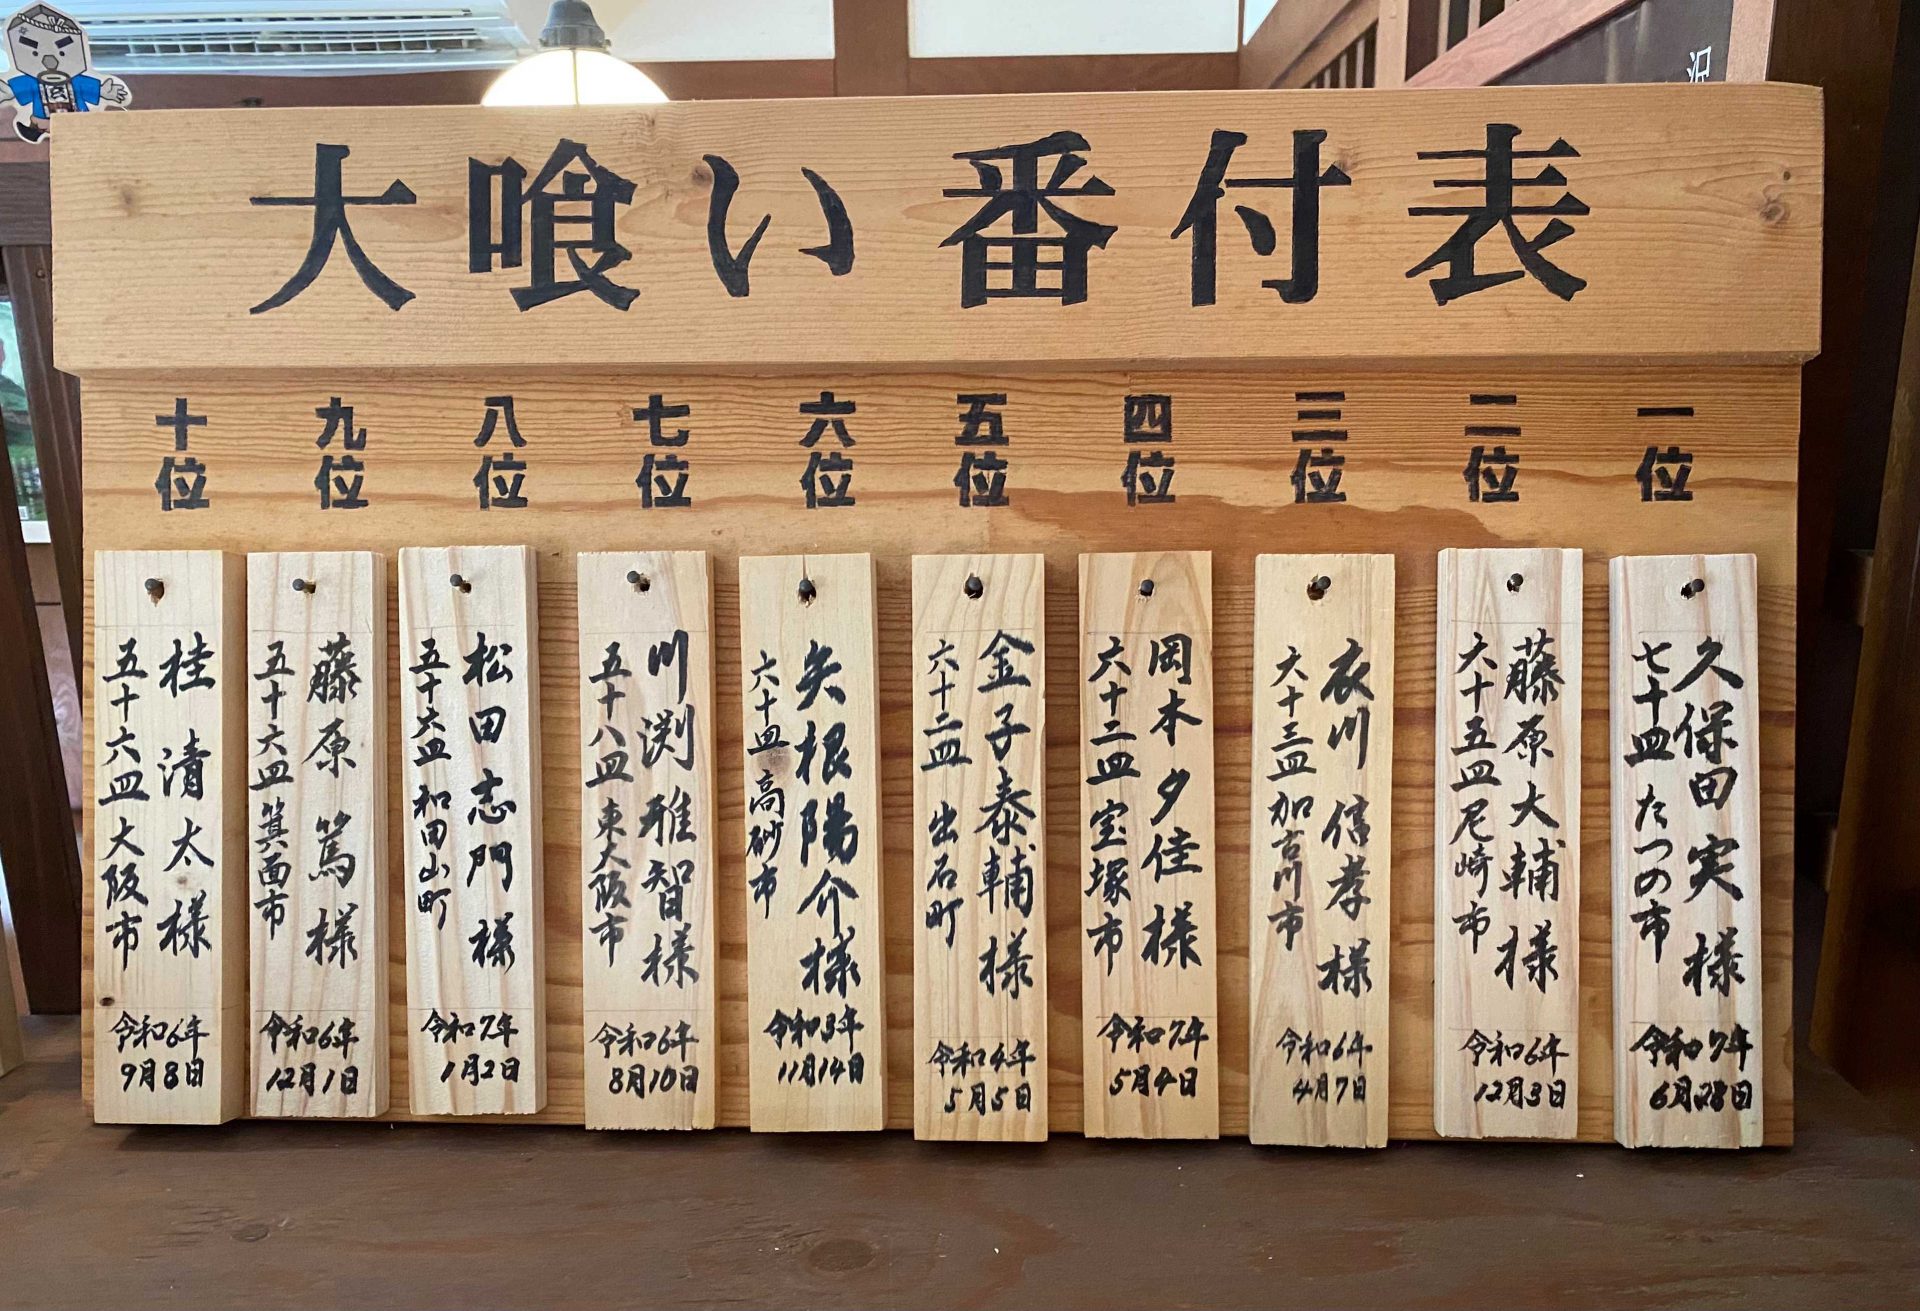 大喰い番付表
一位
久保田実様
七十皿たつの市
令和7年
6月28日
二位
藤原大輔様
六十五皿尼崎市
令和6年
12月3日
三位
衣川信孝様
六十三皿加古川市
令和6年
4月7日
四位
岡本夕佳様
六十二皿宝塚市
令和7年
5月4日
五位
金子泰輔様
六十二皿出石町
令和4年
5月5日
六位
矢根陽介様
六十皿高砂市
令和3年
11月14日
七位
川渕雅智様
五十八皿東大阪市
令和6年
8月10日
八位
松田志門様
五十六皿和田山町
令和7年
1月2日
九位
藤原篤様
五十六皿箕面市
令和6年
12月1日
十位
桂清太様
五十六皿大阪市
令和6年
9月8日